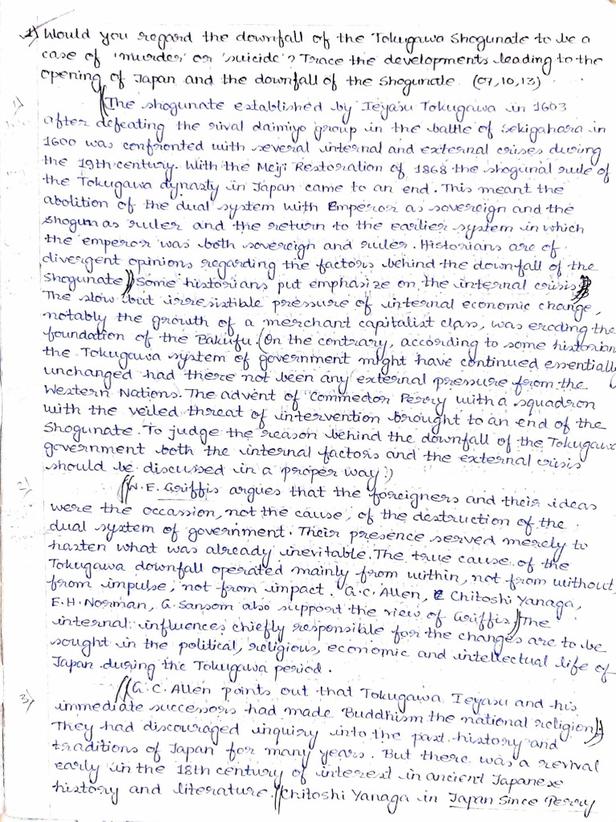 1) Would you regard the downfall of the Tokugawa Shogunate to be a
case of 'murder' or 'suicide'? Trace the developments leading to the
opening of Japan and the downfall of the Shogunate. (07,10,13)
1) The shogunate established by Ieyasu Tokugawa in 1603
after defeating the rival daimiyo group in the battle of Sekigahara in
1600 was confronted with several internal and external crises during
the 19th century. With the Meiji Restoration of 1868 the shogunal rule of
the Tokugawa dynasty in Japan came to an end. This meant the
abolition of the dual system with Emperor as sovereign and the
Shogun as ruler and the return to the earlier system in which
the emperor was both sovereign and ruler. Historians are of
divergent opinions regarding the factors behind the downfall of the
Shogunate. Some historians put emphasize on the internal crisis.
The slow but irresistible pressure of internal economic change,
notably the growth of a merchant capitalist class, was eroding the
foundation of the Bakufu. (On the contrary, according to some historian
the Tokugawa system of government might have continued essentiall
unchanged had there not been any external pressure from the
Western Nations. The advent of Commedor Perry with a squadron
with the veiled threat of intervention brought to an end of the
Shogunate. To judge the reason behind the downfall of the Tokugawa
government both the internal factors and the external crisis
should be discussed in a proper way.)
2) W.E. Griffis argues that the foreigners and their ideas
were the occassion, not the cause, of the destruction of the
dual system of government. Their presence served merely to
hasten what was already inevitable. The true cause of the
Tokugawa downfall operated mainly from within, not from without,
from impulse, not from impact. G.C. Allen, Chitoshi Yanaga,
E.H. Norman, G. Sansom also support the view of Griffis. The
internal influences chiefly responsible for the changes are to be
sought in the political, religious, economic and intellectual life of
Japan during the Tokugawa period.
3) G.C. Allen points out that Tokugawa Ieyasu and his
immediate successors had made Buddhism the national religion.
They had discouraged inquiry into the past history and
traditions of Japan for many years. But there was a revival
early in the 18th century of interest in ancient Japanese
history and literature. Chitoshi Yanaga in Japan Since Perry